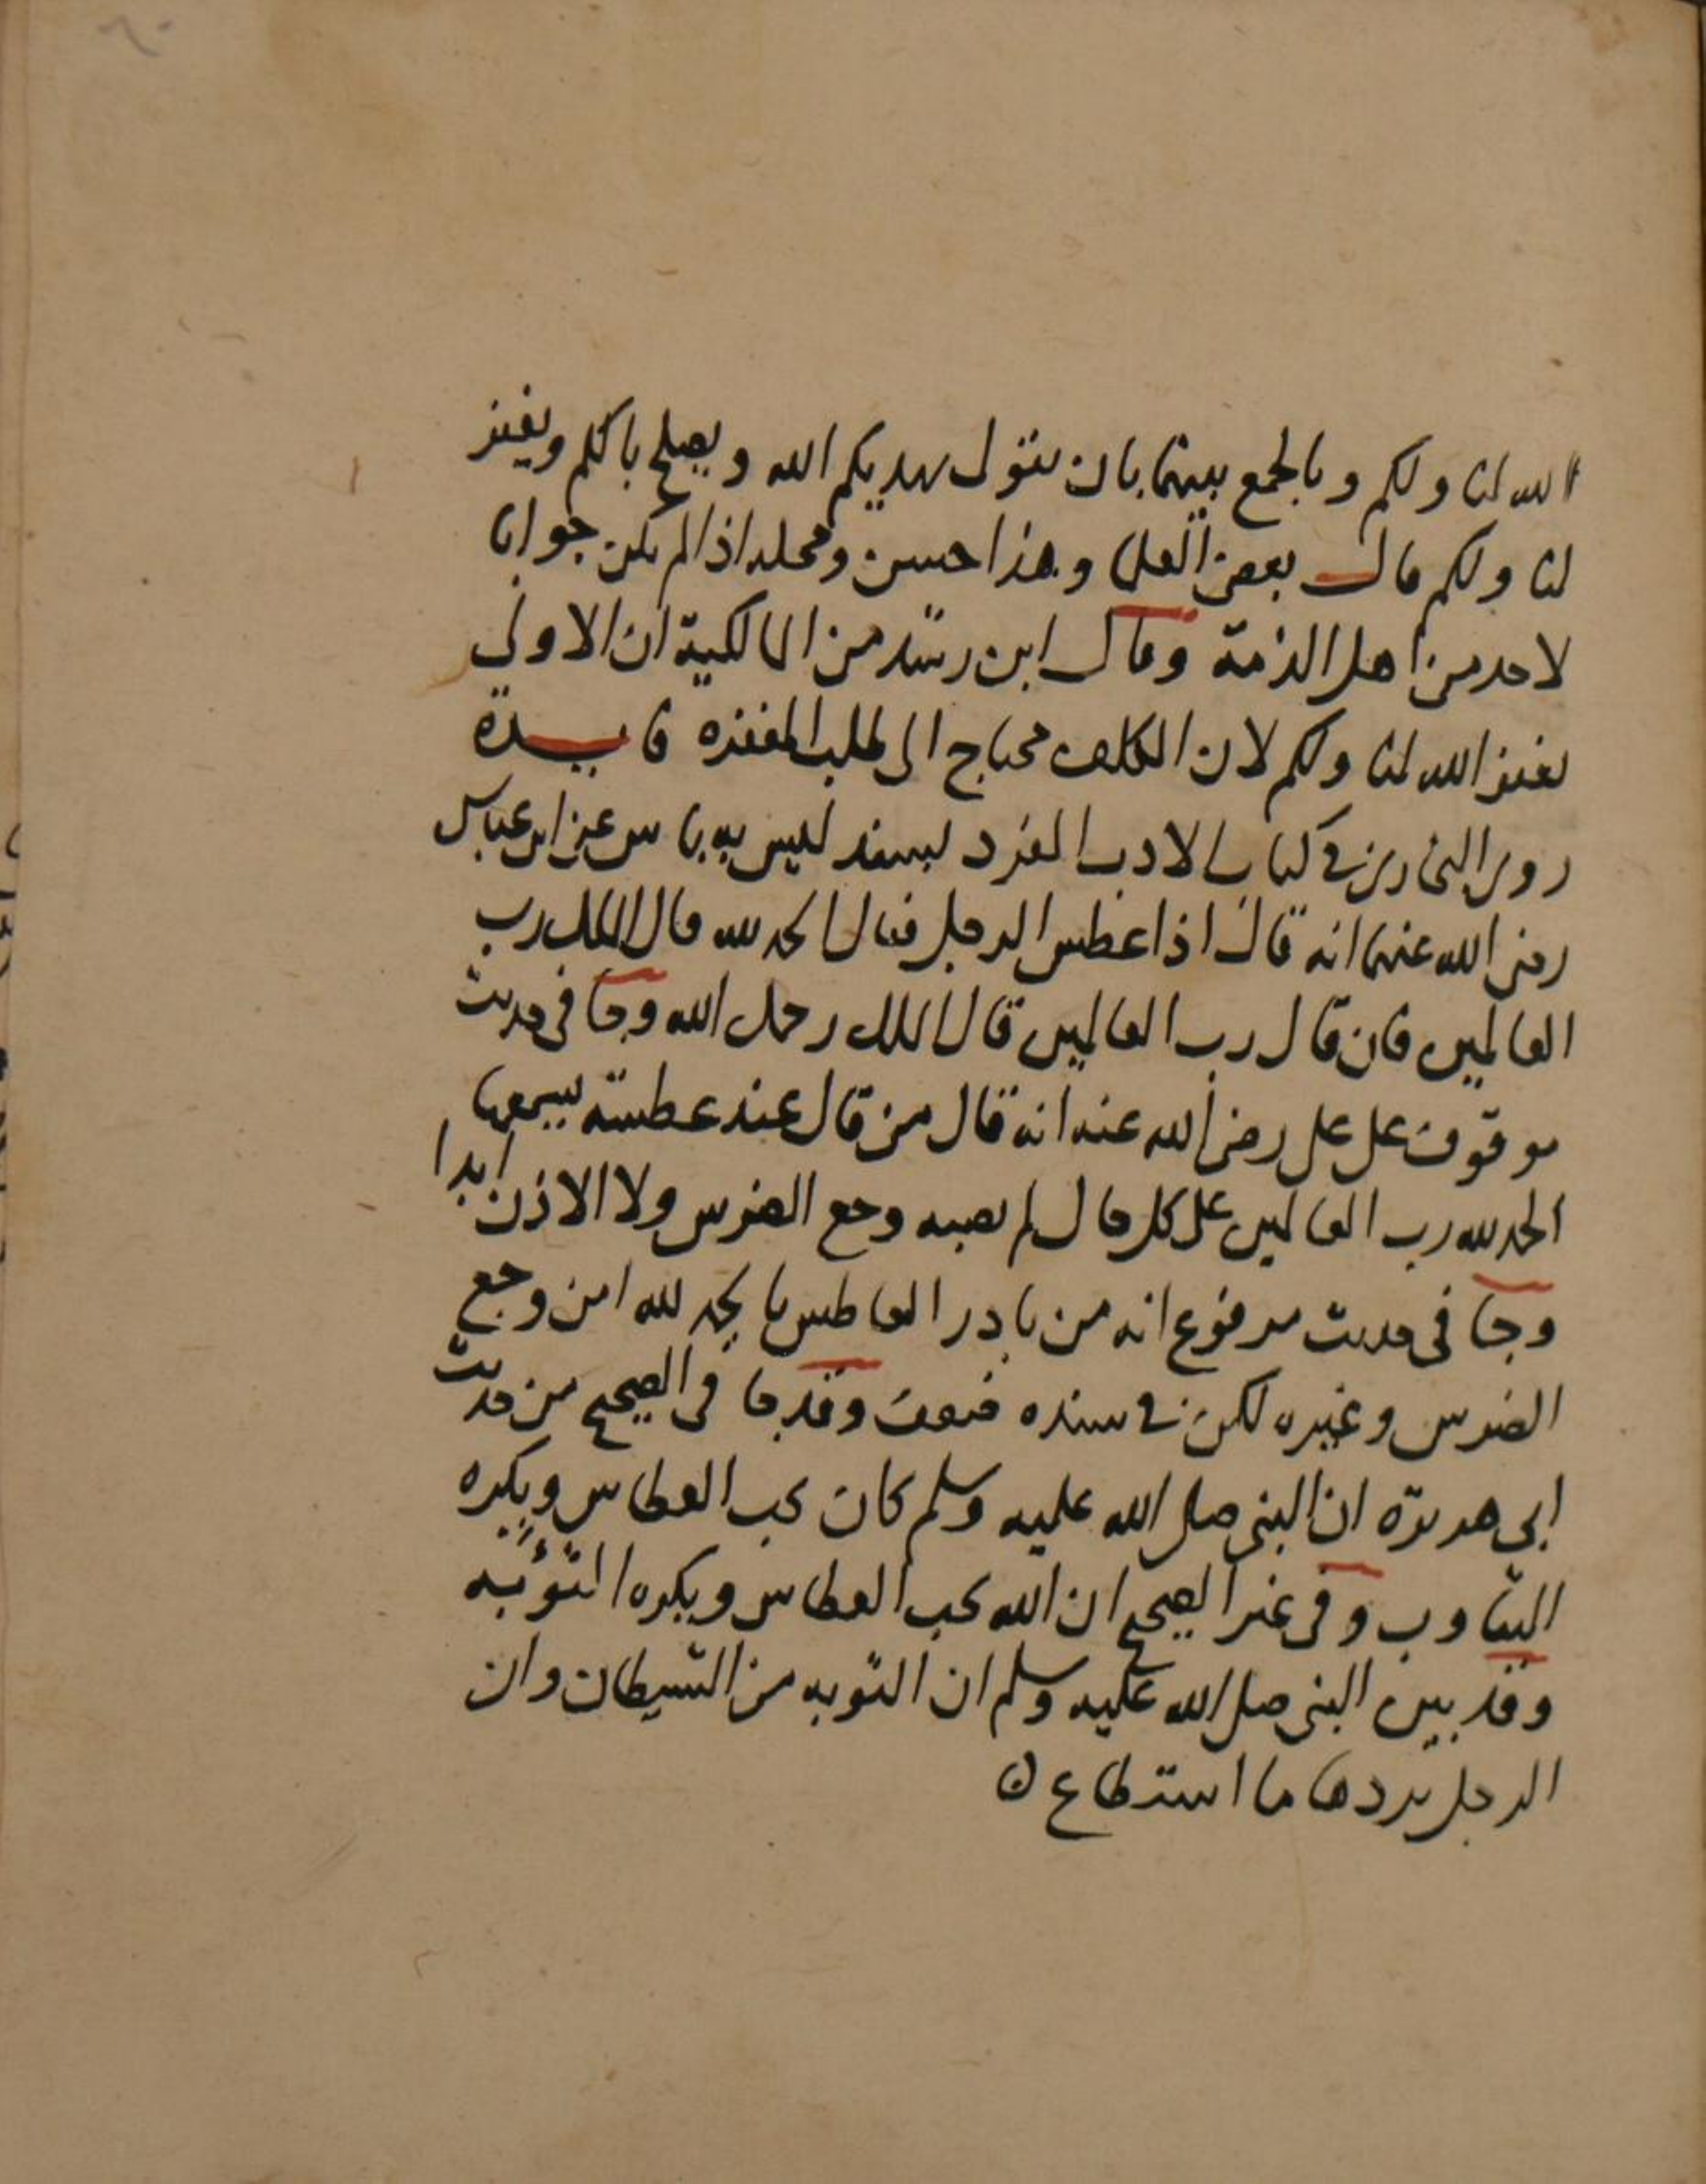 الله لنا ولكم وبالجمع بينهما بان يقول يهديكم الله ويصلح بالكم ويغفر
لنا ولكم قال بعض العلما وهذا حسن ومحله اذا لم يكن جوابا
لاحد من اهل الذمة وقال ابن رشد من المالكية ان الاولى
يغفر الله لنا ولكم لان المكلف محتاج الى طلب المغفره فايدة
روى البخارى في كتاب الادب المفرد بسند ليس به باس عن ابن عباس
رضى الله عنهما انه قال اذا عطس الرجل فقال الحمد لله قال الملك رب
العالمين فان قال رب العالمين قال الملك رحمك الله وجا فى حديث
موقوف على على رضى الله عنه انه قال من قال عند عطسته يسمعها
الحمد لله رب العالمين على كل حال لم يصبه وجع الضرس ولا الاذن ابدا
وجا فى حديث مرفوع انه من بادر العاطس بالحمد لله امن وجع
الضرس وغيره لكن في سنده ضعف وقد جا فى الصحيح من حديث
ابى هريرة ان النبى صلى الله عليه وسلم كان يحب العطاس ويكره
التثاوب وفى غير الصحيح ان الله يحب العطاس ويكره الثوبه
وقد بين النبى صلى الله عليه وسلم ان الثوبه من الشيطان وان
الرجل يردها ما استطاع